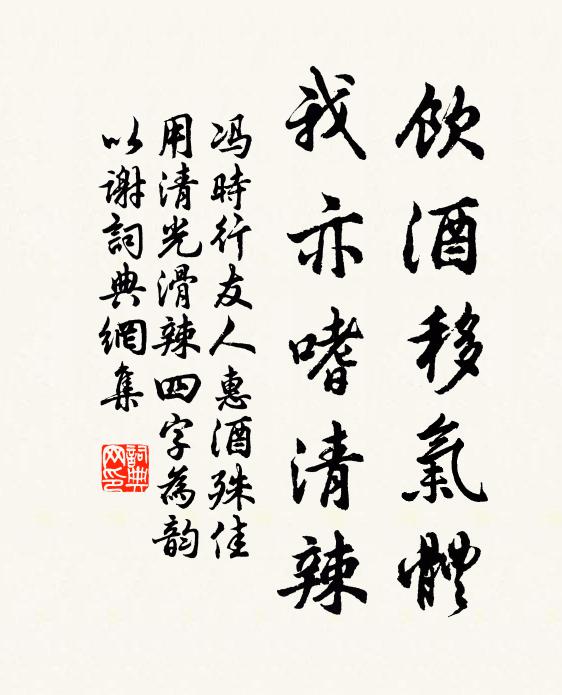 飲酒移氣體
我亦嗜清辣
冯時行友人惠酒殊佳
用清光滑辣四字為韵
以謝詞典網集
詞典网印